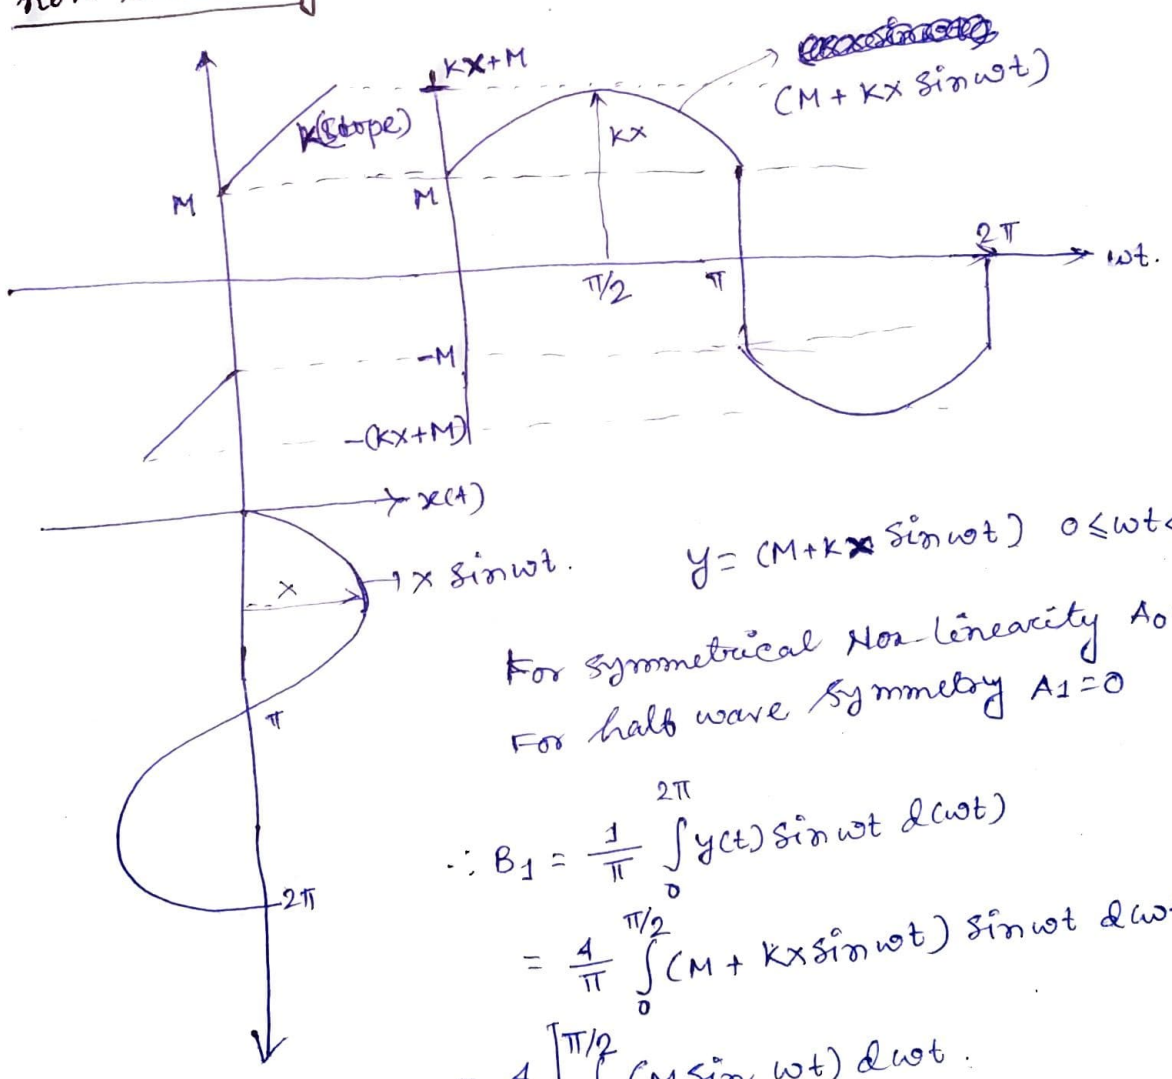 KX+M
(M + KX sin ωt)
K(slope)
KX
M
M
2π
ωt.
π/2
π
-M
-(KX+M)
x(t)
X sin ωt.
X
y = (M+KX sin ωt) 0≤ωt<
For symmetrical Non-linearity A0
For half wave symmetry A1=0
π
∴ B1 = 1/π ∫ 0 2π y(t) sin ωt d(ωt)
2π
= 4/π ∫ 0 π/2 (M + KX sin ωt) sin ωt dω
4 π/2 (M sin ωt) dωt.